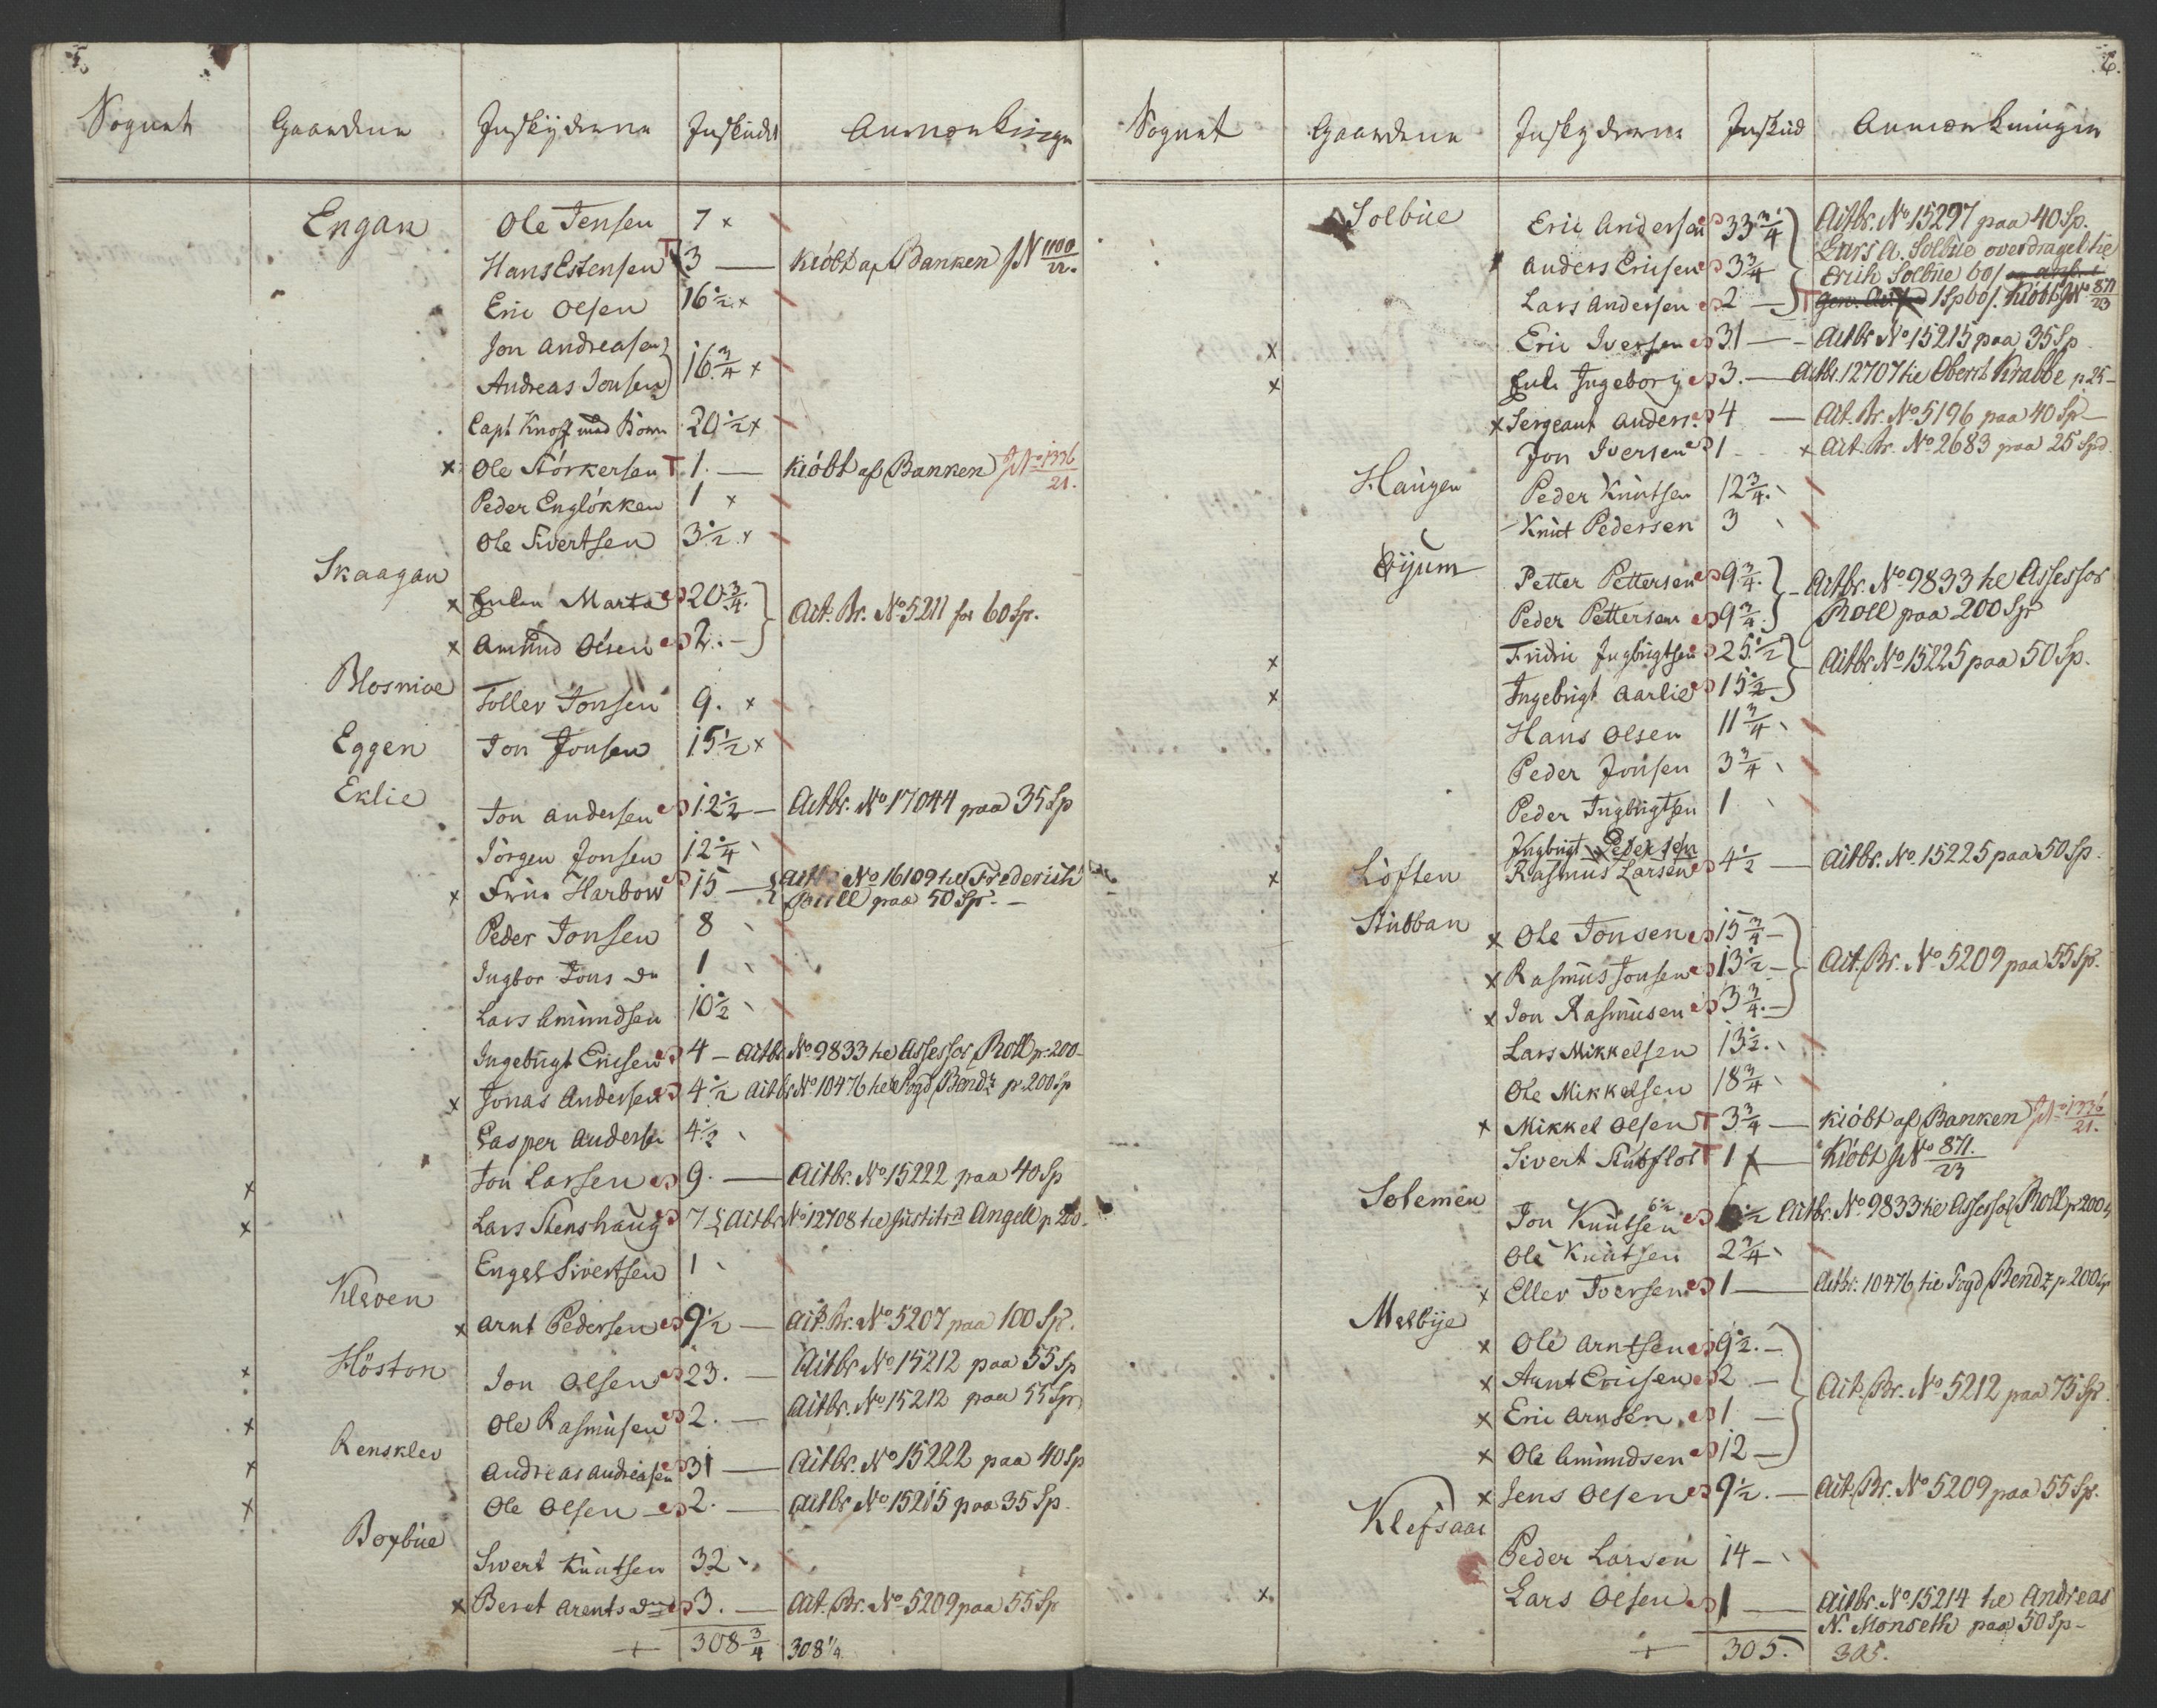 5.
Sognet Gaardene Inskyderne Inskudet Anmærkninger
Engan Ole Jensen 7 x
Hans Estensen T 3 — Kiöbt af Banken J N 1100/22.
Eric Olsen 16 1/2 x
Jon Andreasen
Andreas Jonsen 16 3/4 x
Capt Knoff 20 1/2 x
x Ole Störkersen T 1. — Kiöbt af Banken J No 1336/21.
Peder Englökken 1 x
Ole Sivertsen 3 1/2 x
Skaagan
x Enken Marta 20 3/4
x Amund Olsen 2. — Act. Br. No 5211 for 60 Sp.
Blosmoe Toller Jonsen 9. x
Eggen Jon Jonsen 15 1/2 x
Eklie
Jon Andersen 12 1/2 — Actbr. No 17044 paa 35 Sp
Jörgen Jonsen 12 1/4
x Harbow 15 — Actbr No 16109 til Frederich
paa 50 Sp. —
Peder Jonsen 8
Ingbor Jons Dr 1
Lars Amundsen 10 1/2
Ingebrigt Ericsen 4 — Actbr No 9833 til Assessor Roll p. 200 —
x Jonas Andersen 4 1/2 Actbr No 10476 til Fogd Bendz p. 200 Sp
Casper Anders 4 1/2
x Jon Larsen 9. — Actbr. No 15222 paa 40 Sp
x Lars Stenshaug 7 Actbr No 12708 til Justitsr Angell p 200.
Engel Sivertsen 1
Kleven
x Arnt Pedersen 9 1/2 — Act. Br. No 5207 paa 100 Sp.
Höston
x Jon Olsen 23. — Actbr No 15212 paa 55 Sp
x Ole Rasmusen 2. — Actbr. No 15212 paa 55 Sp
Rensklev
x Andreas Andreasen 31 — Actbr. No 15222 paa 40 Sp
x Ole Olsen 2. — Actbr No 15215 paa 35 Sp.
Borbüe
Sivert Knutsen 32
x Beret Arents Dr 3. — Act. Br. No 5209 paa 55 Sp
+ 308 3/4 308 1/4
6.
Sognet Gaardene Inskyderne Inskud Anmærkninger
Solbue Eric Andersen 33 3/4 Actbr. No 15297 paa 40 Sp.
Anders Ericsen 3 3/4 Lars A. Solbue overdraget til
Erich Solbue
Lars Andersen 2 — T 1 Sp Kiöbt J No 871/23
x Eric Iversen 31 — Actbr No 15215 paa 35 Sp
x Enk. Ingeborg 3. — Actbr. 12707 til Oberst Krabbe p. 25 —
x Sergeant Anders. 4 — Act. Br. No 5196 paa 40 Sp —
Jon Iversen 1 x Act. Br. No 2683 paa 25 Spd
Haugen Peder Knutsen 12 3/4
Knut Pedersen 3
Öyum
Petter Pettersen 9 3/4 Actbr. No 9833 til Assessor
Peder Pettersen 9 3/4 Roll paa 200 Sp
x Fridric Ingbrigtsen 25 1/2 Actbr No 15225 paa 50 Sp.
x Ingebrigt Aarlie 15 1/2
Hans Olsen 11 3/4
Peder Jonsen 3 3/4
Peder Ingbrigtsen 1
Ingbrigt Pedersen
x Löften Rasmus Larsen 4 1/2 — Actbr. No 15225 paa 50 Sp.
Stubban x Ole Jonsen 15 3/4 —
x Rasmus Jonsen 13 1/2 — Act. Br. No 5209 paa 55 Sp.
x Jon Rasmusen 3 3/4 —
Lars Mikkelsen 13 1/2.
Ole Mikkelsen 18 3/4
x Mikkel Olsen T 3 3/4 — Kiöbt af Banken J No 1336/21.
Sivert Stubflot T 1 — Kiöbt J No 871/23
Solemen
Jon Knutsen 6 1/2 6 1/2 Actbr. No 9833 til Assessor Roll p 200
Ole Knutsen 2 3/4
x Eller Iversen 1 — Actbr. 10476 til Fogd Bendz p. 200 Sp
Melbye
x Ole Arntsen 9 1/2. —
x Arnt Ericsen 2 — Act. Br. No 5212 paa 75 Sp.
x Eric Arntsen 1 —
x Ole Amundsen 12 —
x Jens Olsen 9 1/2. — Act. Br. No 5209 paa 55 Sp.
Klefsaas
Peder Larsen 14 —
x Lars Olsen 1 — Actbr. No 15214 til Andreas
N. Monseth paa 50 Sp —
+ 305. 305.